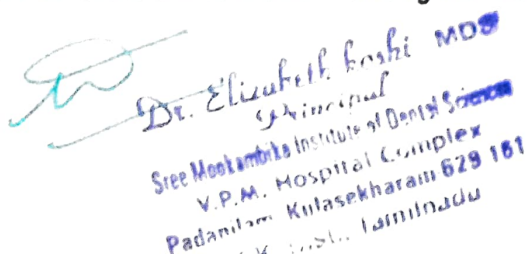 Dr. Elizabeth Koshi MDS
Principal
Sree Mookambika Institute of Dental Sciences
V.P.M. Hospital Complex
Padanilam Kulasekharam 629 161
Tamilnadu